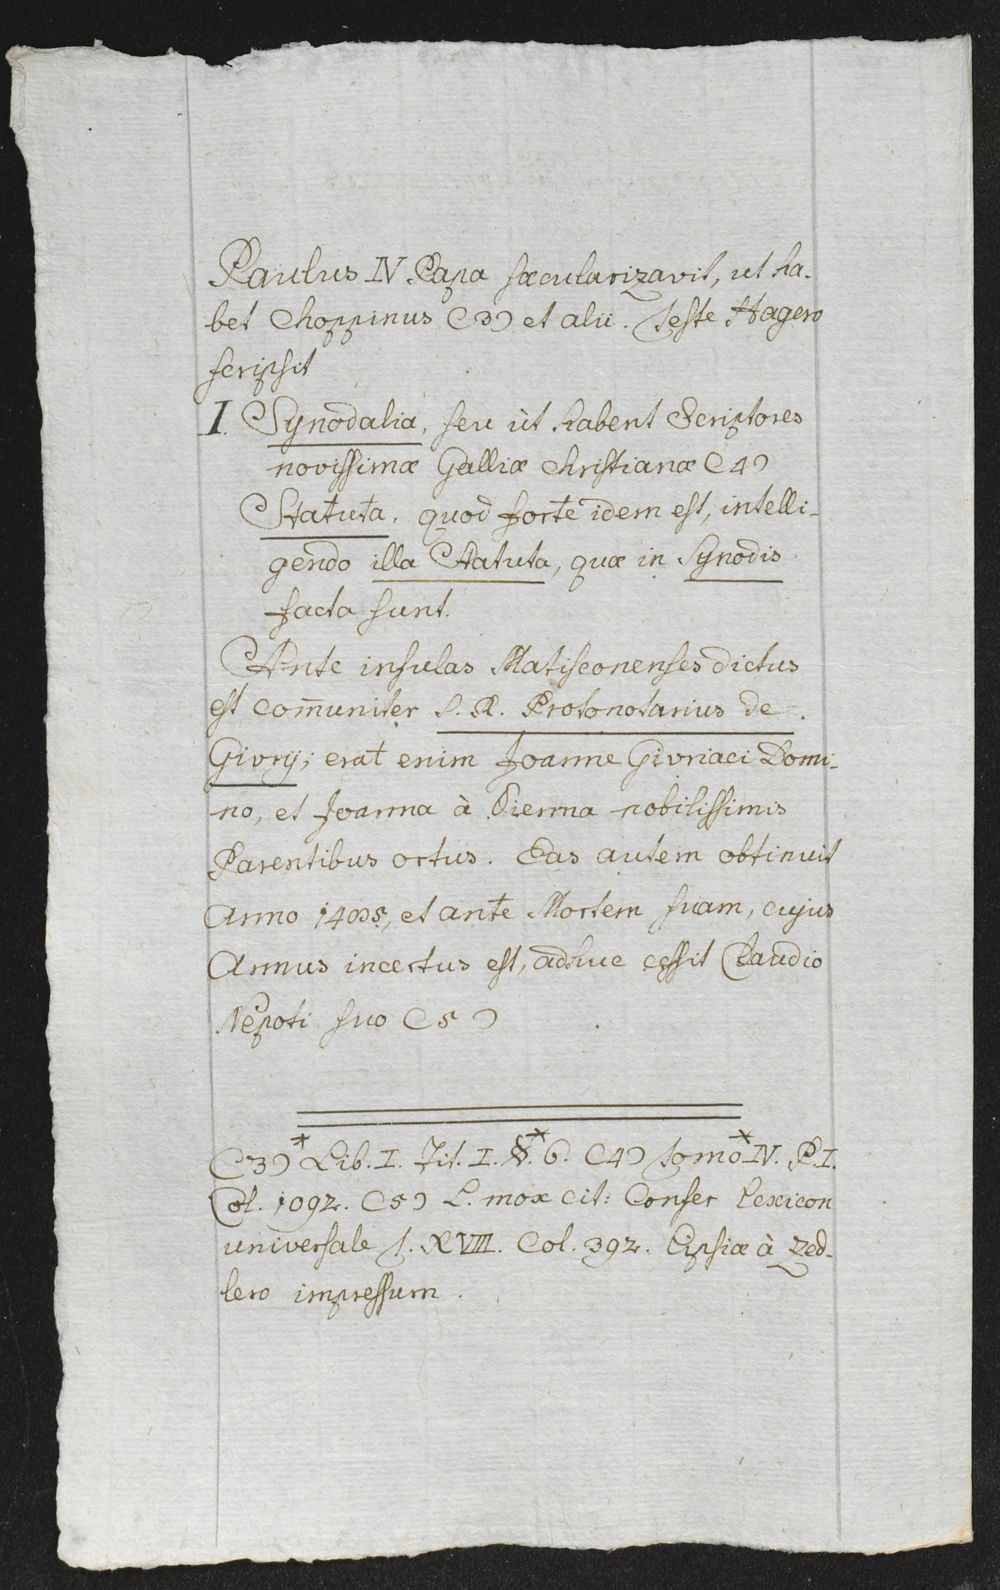 Paulus IV Papa sæcularizavit, ut ha-
bet Choppinus (3) et alii. Teste Hagero
scripsit
I. Synodalia, seu ùt habent Scriptores
novissimæ Galliæ Christianæ (4)
Statuta. quod forte idem est, intelli-
gendo illa Statuta, quæ in Synodis
facta sunt.
Ante insulas Matisconenses dictus
est com̄uniter S. R. Protonotarius de
Givrÿ; erat enim Joanne Givriaci Domi-
no, et Joanna à Vienna nobilissimis
Parentibus ortus. Eas autem obtinuit
Anno 1405, et ante Mortem suam, cujus
Annus incertus est, adhuc cessit Claudio
Nepoti suo (5)
(3)* Lib. I. Tit. I. §.* 6. (4) tomo* IV. P. I.
Col. 1092. (5) L. mox cit: Confer Lexicon
universale T. XVIII. Col. 392. Lipsiæ à Zed-
lero impressum.